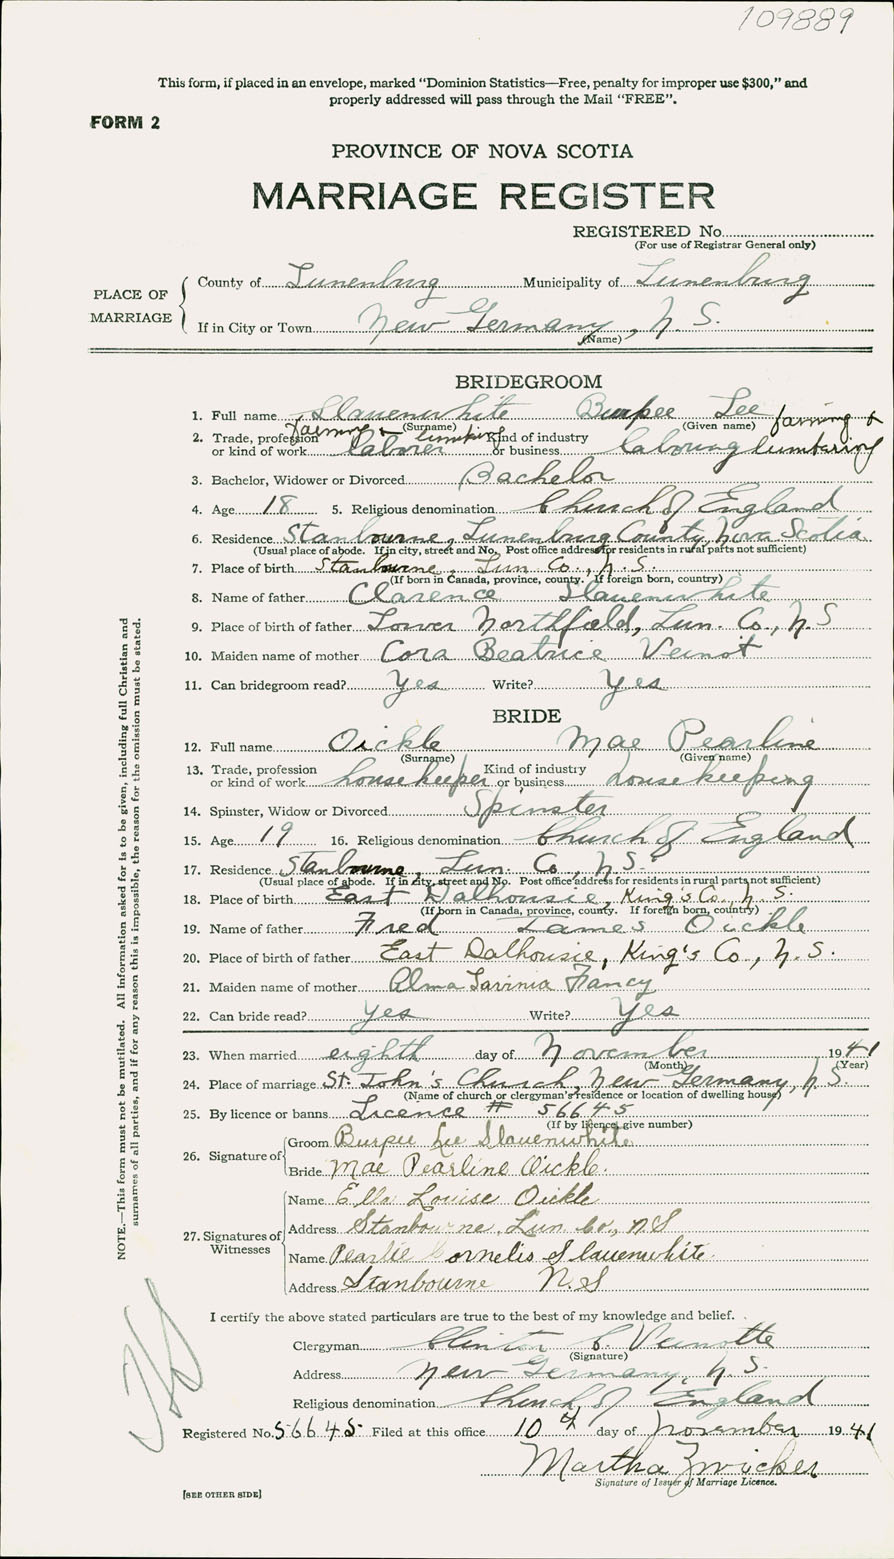 109889
This form, if placed in an envelope, marked “Dominion Statistics—Free, penalty for improper use $300,” and
properly addressed will pass through the Mail “FREE”.
FORM 2
PROVINCE OF NOVA SCOTIA
MARRIAGE REGISTER
REGISTERED No.
(For use of Registrar General only)
PLACE OF MARRIAGE
County of Lunenburg Municipality of Lunenburg
If in City or Town New Germany, N. S.
(Name)
BRIDEGROOM
1. Full name Slauenwhite Burpee Lee
(Surname) (Given name)
farming & lumbering farming &
2. Trade, profession or kind of work laborer Kind of industry or business labouring lumbering
3. Bachelor, Widower or Divorced Bachelor
4. Age 18 5. Religious denomination Church of England
6. Residence Stanbourne, Lunenburg County, Nova Scotia
(Usual place of abode. If in city, street and No. Post office address for residents in rural parts not sufficient)
7. Place of birth Stanbourne, Lun Co., N. S.
(If born in Canada, province, county. If foreign born, country)
8. Name of father Clarence Slauenwhite
9. Place of birth of father Lower Northfield, Lun. Co., N. S
10. Maiden name of mother Cora Beatrice Veinot
11. Can bridegroom read? Yes Write? Yes
BRIDE
12. Full name Oickle Mae Pearline
(Surname) (Given name)
13. Trade, profession or kind of work housekeeper Kind of industry or business housekeeping
14. Spinster, Widow or Divorced Spinster
15. Age 19 16. Religious denomination Church of England
17. Residence Stanbourne, Lun. Co, N. S.
(Usual place of abode. If in city, street and No. Post office address for residents in rural parts not sufficient)
18. Place of birth East Dalhousie, King's Co., N. S.
(If born in Canada, province, county. If foreign born, country)
19. Name of father Fred James Oickle
20. Place of birth of father East Dalhousie, King's Co., N. S.
21. Maiden name of mother Alma Lavinia Fancy
22. Can bride read? Yes Write? Yes
23. When married eighth day of November 1941
(Month) (Year)
24. Place of marriage St. John's Church, New Germany, N. S.
(Name of church or clergyman's residence or location of dwelling house)
25. By licence or banns Licence # 56645
(If by licence, give number)
26. Signature of
Groom Burpee Lee Slauenwhite
Bride Mae Pearline Oickle.
27. Signatures of Witnesses
Name Ella Louise Oickle
Address Stanbourne, Lun Co., N.S
Name Pearlie Cornelis Slauenwhite
Address Stanbourne N.S
I certify the above stated particulars are true to the best of my knowledge and belief.
Clergyman Clinton C. Veinotte
(Signature)
Address New Germany, N. S.
Religious denomination Church of England
Registered No. 56645 Filed at this office 10th day of November 1941
Martha Zwicker
Signature of Issuer of Marriage Licence.
[SEE OTHER SIDE]
NOTE.—This form must not be mutilated. All information asked for is to be given, including full Christian and
surnames of all parties, and if for any reason this is impossible, the reason for the omission must be stated.